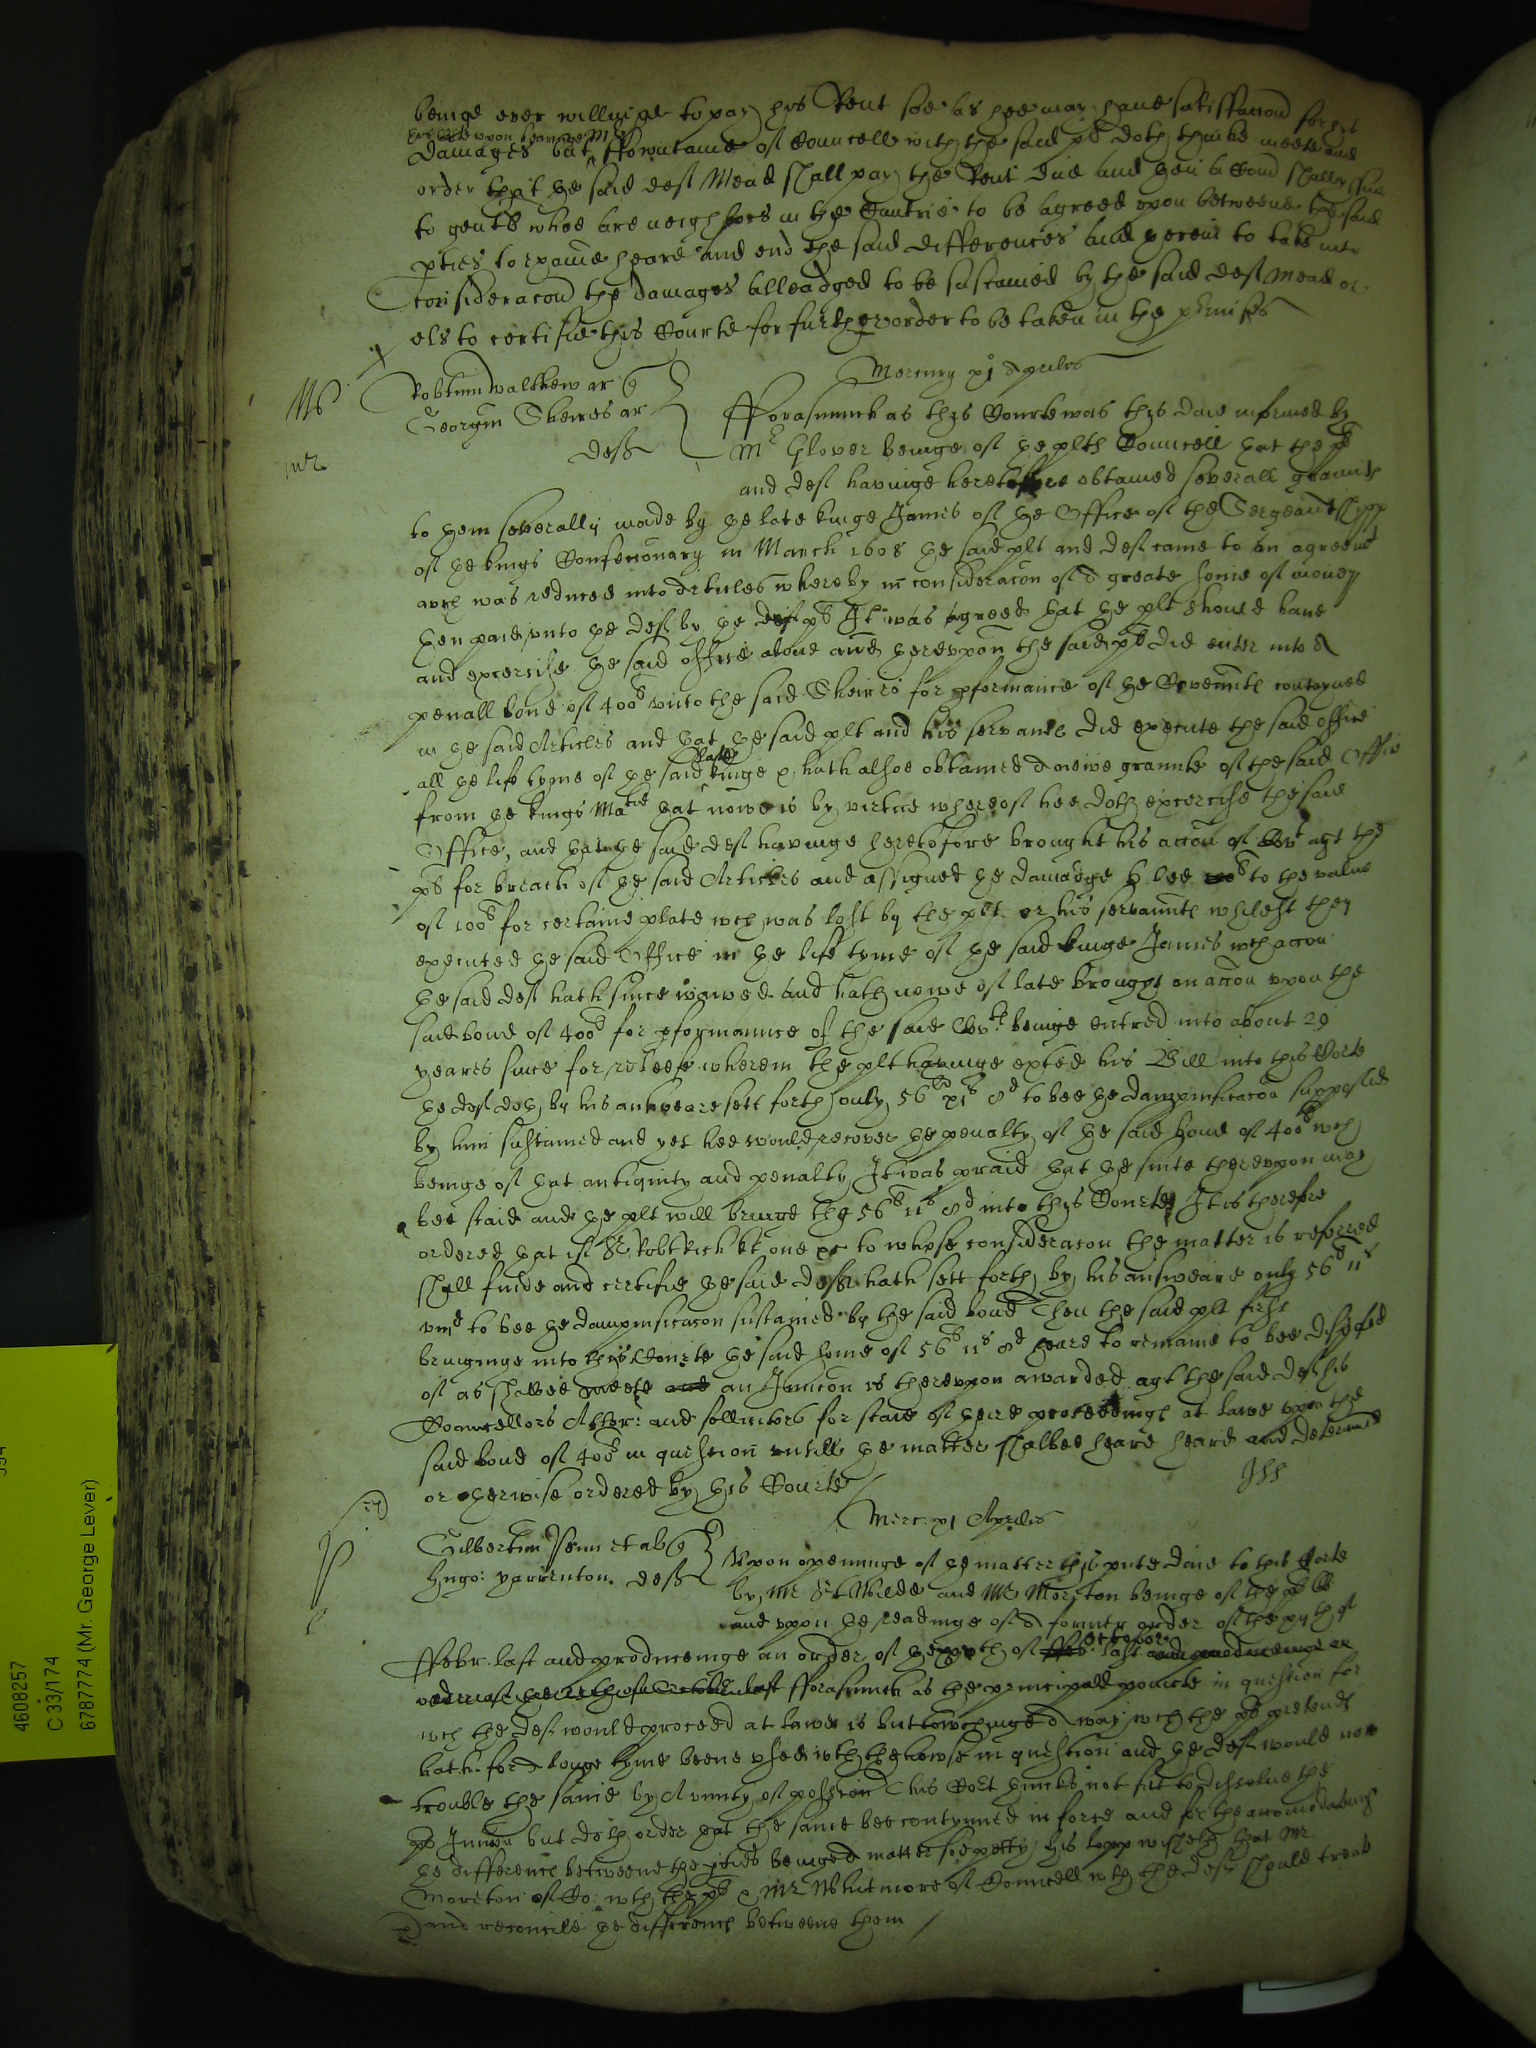 beinge ever willinge to pay his Rent soe as hee may have satisfaccon for his
damages but upon hearinge Mr Fountaine of Councell with the said plt doth thinke meete and
order that the said deft Mead shall pay the Rent due and then a Comn shall yssue
to gentls whoe are neighbors in the Cuntrie to be agreed upon betweene the said
pties to examine heare and end the said differences and therein to take into
consideracon the damages alleadged to be sustained by the said deft Mead or
els to certifie this Courte for further order to be taken in the pmises
Mercurij xj Aprilis
Robtum Walthew ar
Georgm Sheires ar
deft
Forasmuch as this Courte was this daie informed by
Mr Glover beinge of the plts Councell that the plt
and deft havinge heretofore obtained severall graunts
to them severally made by the late kinge James of the Office of the Sergeantshipp
of the kings Confeconary in March 1608 the said plt and deft came to an agreemt
wch was reduced into Articles whereby in consideracon of a greate some of money
then paid unto the deft by the plt It was agreed that the plt should have
and exercise the said office alone and thereupon the said plt did enter into a
penall bond of 400l unto the said Sheires for pformance of the Covennts contayned
in the said Articles and that the said plt and his servants did execute the said office
all the life tyme of the said late kinge & hath alsoe obtained a newe graunte of the said Office
from the kings Matie that nowe is by virtue whereof hee doth exercise the said
Office, and that the said deft havinge heretofore brought his accon of Covt agt the
plt for breach of the said Articles and assigned the damadge to bee to the value
of 100l for certaine plate wch was lost by the plt or his servaunts whilest they
executed the said Office in the life tyme of the said kinge James wch accon
the said deft hath since waived and hath nowe of late brought an accon upon the
said bond of 400l for pformance of the said Covts beinge entred into about 29
yeares since for releefe wherein the plt havinge exhted his Bill into this Corte
the deft doth by his answeare sett forth only 56l xjs 8d to bee the dampnificacon supposed
by him sustained and yet hee would recover the penalty of the said bond of 400l wch
beinge of that antiquity and penalty It was praid that the suite thereupon may
bee staid and the plt will bringe the 56l 11s 8d into this Courte It is therefore
ordered that if Sr Robt Rich kt one &c to whose consideracon the matter is referred
shall finde and certifie the said deft hath sett forth by his answeare only 56l 11s
viijd to bee the dampnificacon sustained by the said bond Then the said plt first
bringinge into this Courte the said some of 56l 11s 8d there to remaine to bee disposed
of as shalbee meete and an Iniuncon is thereupon awarded agt the said deft his
Councellors Attor: and sollicitors for staie of theire proceedings at lawe upon the
said bond of 400l in question untill the matter shalbee heard heard and determined
or otherwise ordered by this Courte
Merc. xj Aprilis
Gilbertum Penn et al
Hugo: Yarrenton. deft
Upon openinge of the matter this pnte daie to this Corte
by Mr and Mr Moreton beinge of the plts
and upon the readinge of a former order of the of
Febr. last and produceinge an order of the of October last
Forasmuch as the principall pointe in question for
wch the deft would proceed at lawe is but towchinge a way wch the plt pretends
hath for a longe tyme beene used wth the howse in question and the deft would now
trouble the same by of possion This Cort thinks not fit to dissolve the
said Iniuncn but doth order that the same bee contynued in force and for the accomodateing
the difference betweene the pties beinge a matter soe petty his lopp wisheth that Mr
Moreton of Co: wth the plt & Mr Whitmore of Councell wth the deft should treat
and reconcile the difference betweene them
4608257
C 33/174
6787774 (Mr. George Lever)